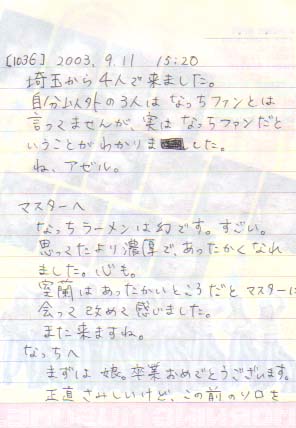 [1036] 2003. 9. 11 15:20
埼玉から4人で来ました。
自分以外の3人はなっちファンとは
言ってませんが、実はなっちファンだと
いうことがわかりました。
ね、アゼル。
マスターへ
なっちラーメンは幻です。すごい。
思ってたより濃厚で、あったかくなれ
ました。心も。
室蘭はあったかいところだとマスターに
会って改めて感じました。
また来ますね。
なっちへ
まずは娘。卒業おめでとうございます。
正直さみしいけど、この前のソロを